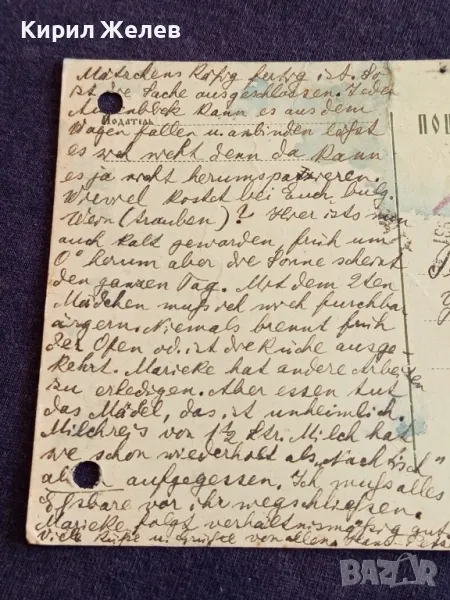 Кирил Желев
Mätschens Käfig fertig ist. So
ist die Sache ausgeschlossen. Jeden
Augenblick kann es aus dem
Податель
Wagen fallen u. anbinden läßt
es sich nicht denn da kann
es ja nicht herumspazieren.
Wieviel kostet bei Euch bulg.
Wein (Trauben)? Hier ists nun
auch kalt geworden, früh um
0° herum aber die Sonne scheint
den ganzen Tag. Mit dem 2ten
Mädchen muß ich mich furchtbar
ärgern. Niemals brennt früh
der Ofen od. ist die Küche ausge-
kehrt. Marieke hat andere Arbeiten
zu erledigen. Aber essen tut
das Mädel, das ist unheimlich.
Milchreis von 1½ Ltr. Milch hat
sie schon wiederholt als „Nachtisch"
allein aufgegessen. Ich muß alles
Eßbare vor ihr wegschließen.
Marieke folgt verhältnismäßig gut.
Viele Küße u. Grüße von allen.
ПОЩ
BAZAR